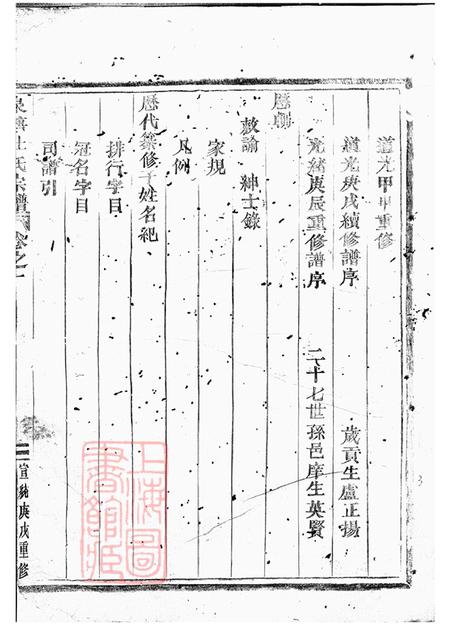 道光甲申重修
道光庚戌續修譜序 歲貢生盧正揚
光緒庚辰重修譜序 二十七世孫邑庠生英賢
歷朝
敕諭 紳士錄
家規
凡例
歷代纂修丁姓名紀
排行字目
冠名字目
司譜引
杜氏宗譜 卷之一
宣統庚戌重修
上海圖書館藏